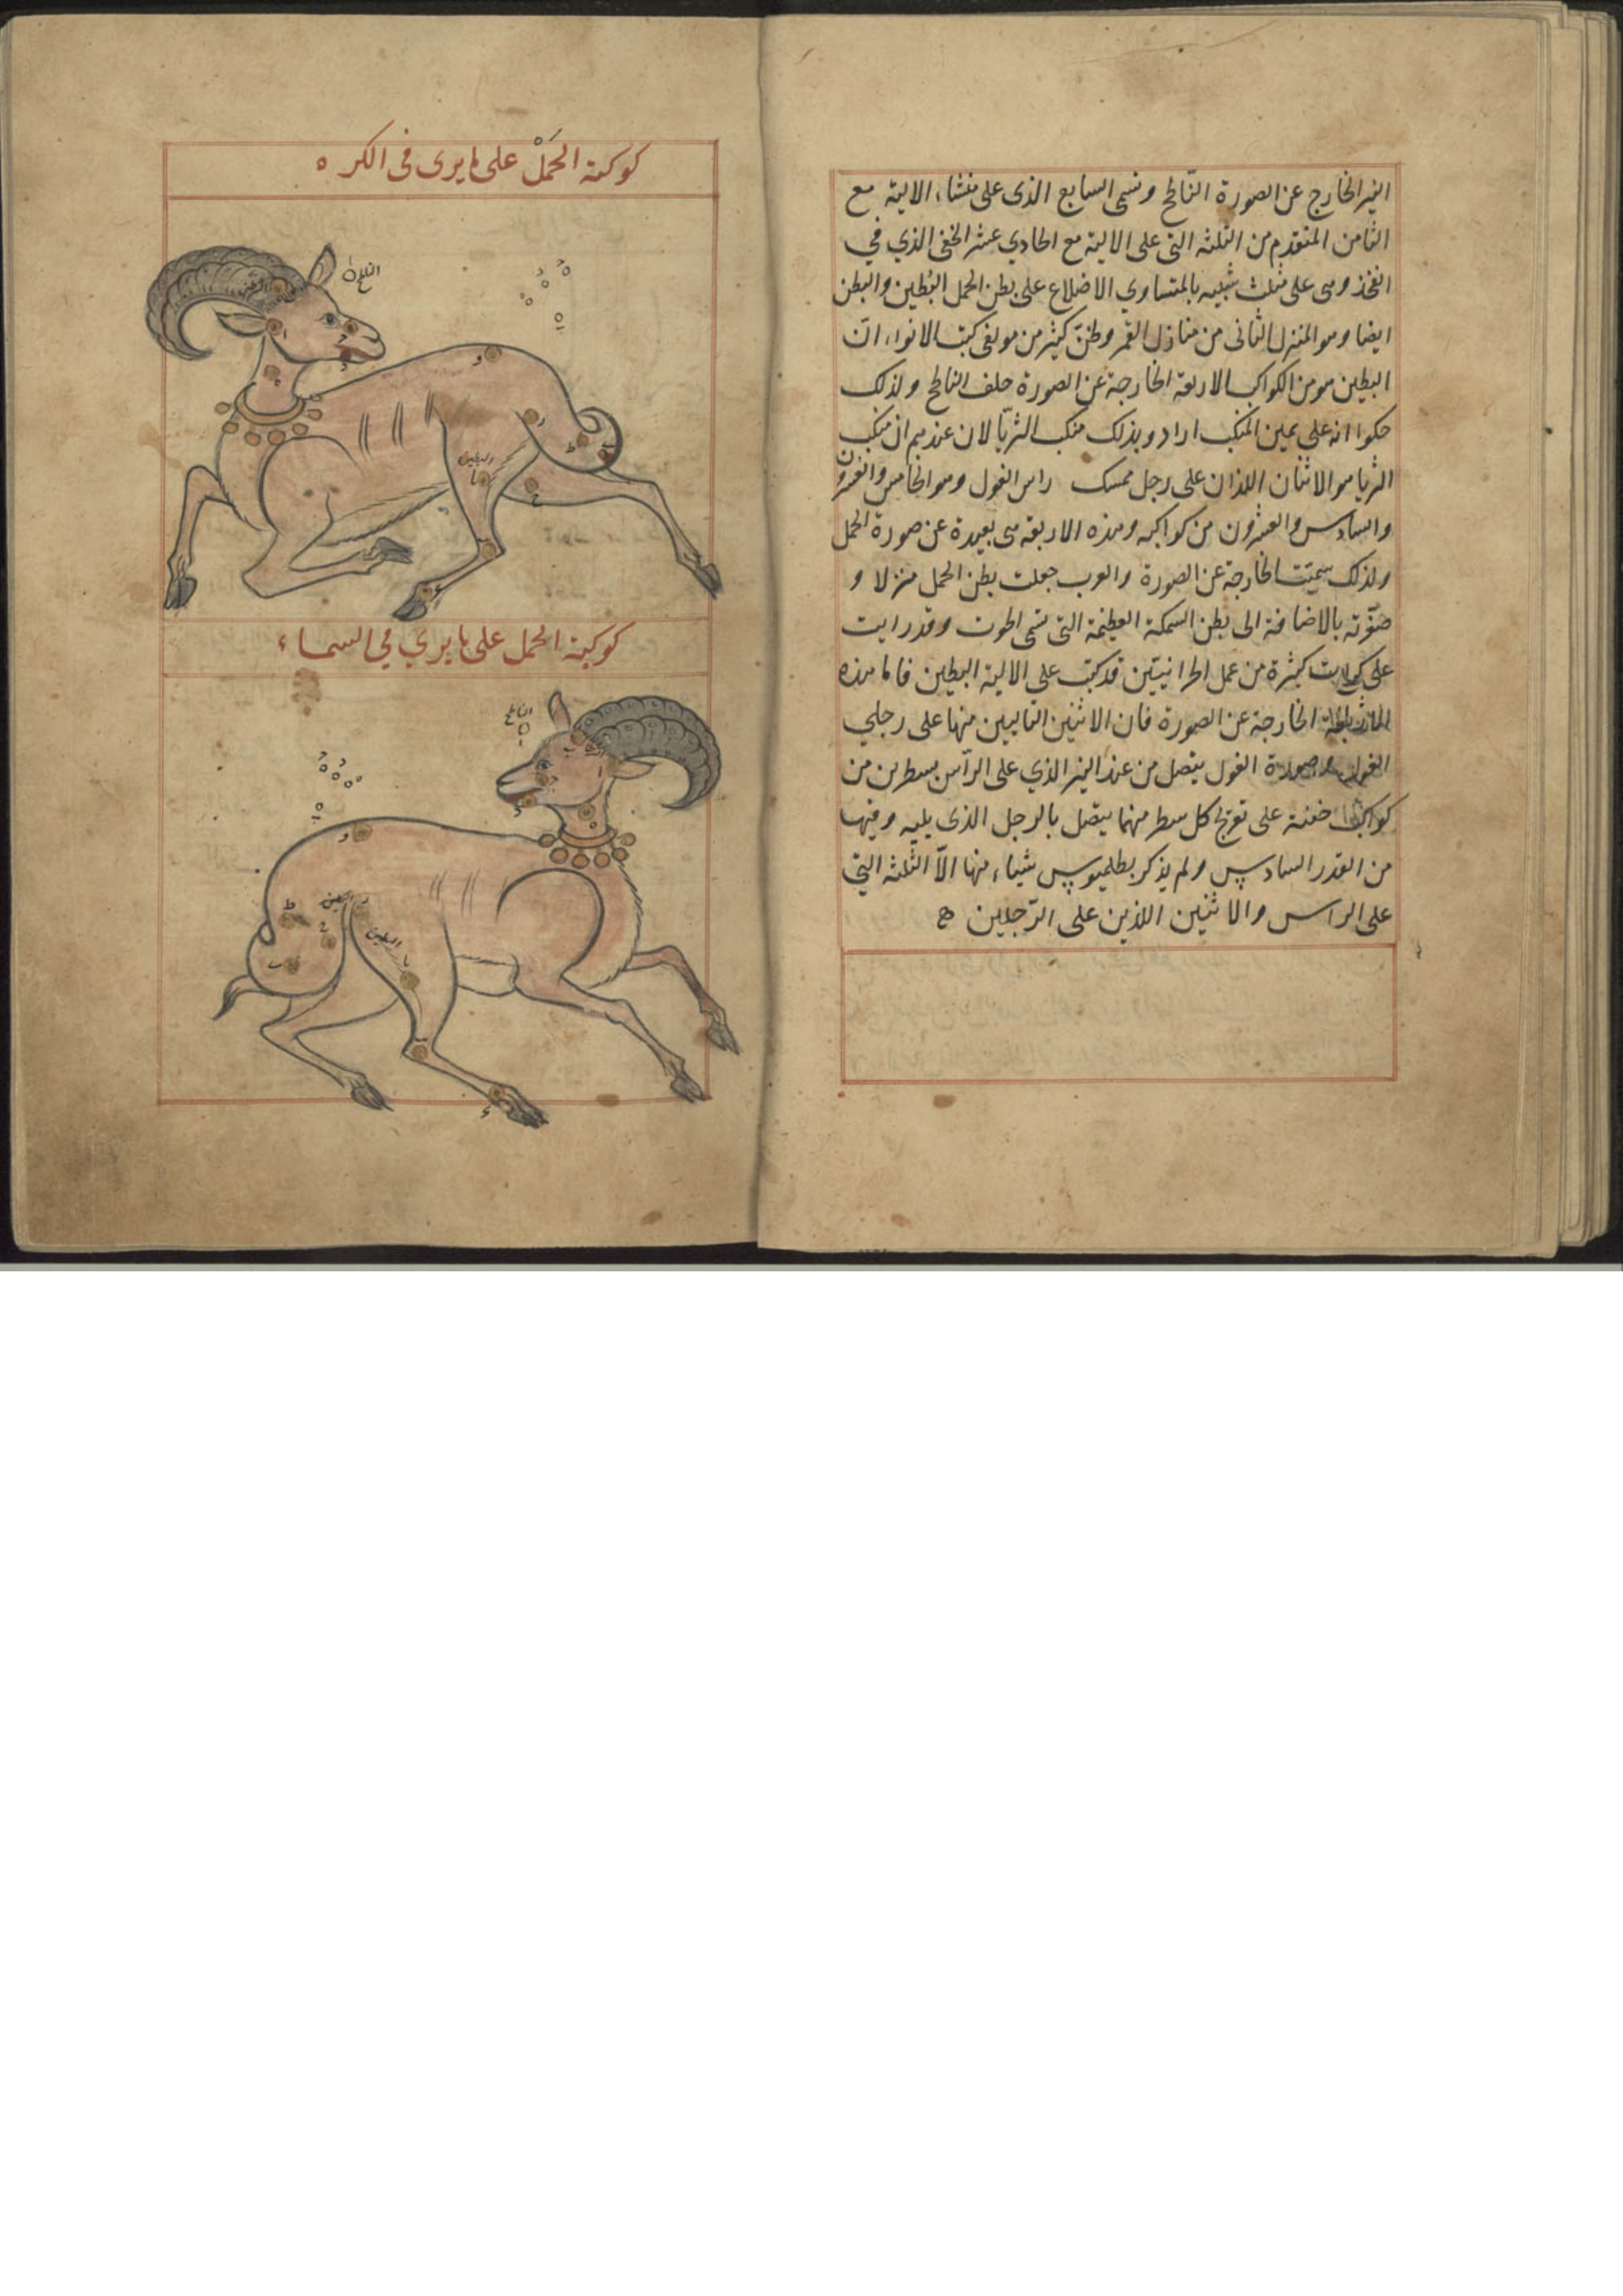 النير الخارج عن الصورة الناطح وتسمى السابع الذى على منشاء الالية مع
الثامن المتقدم من الثلثه التى على الالية مع الحادي عشر الخفى الذي في
الفخذ وهى على مثلث شبيه بالمتساوي الاضلاع على بطن الحمل البُطين والبطن
ايضا وهو المنزل الثانى من منازل القمر وظنّ كثير من مولفى كتب الانواء انّ
البطين هو من الكواكب الاربعة الخارجة عن الصورة خلف الناطح ولذلك
حكوا انه على يمين المنكب ارادو بذلك منكب الثريّا لان عندهم ان منكب
الثريا هو الاثنان اللذان على رجل ممسك راس الغول وهو الخامس والعشرون
والسادس والعشرون من كواكبه وهذه الاربعة هى بعيدة عن صورة الحمل
ولذلك سميّت الخارجة عن الصورة والعرب جعلت بطن الحمل منزلا و
صغّرته بالاضافة الى بطن السمكة العظيمة التى تسمى الحوت وقد رايت
على كثيرة من عمل الحرانيّين قد كتب على الالية البطين فاما هذه
الخارجة عن الصورة فان الاثنين التاليين منها على رجلي
الغول وصورة الغول يتصل من عند النير الذي على الرآس بسطرين من
كواكب خفية على تعريج كل سطر منهما يتصل بالرجل الذى يليه وفيها
من القدر السادس ولم يذكر بطلميوس شيئاء منها الاّ الثلثه التي
على الراس والاثنين اللذين على الرّجلين
كوكبة الحَمَلْ على ما يرى فى الكره
الناطح
البطين
كوكبة الحمل على ما يري في السماء
الناطح
البطين
البطين